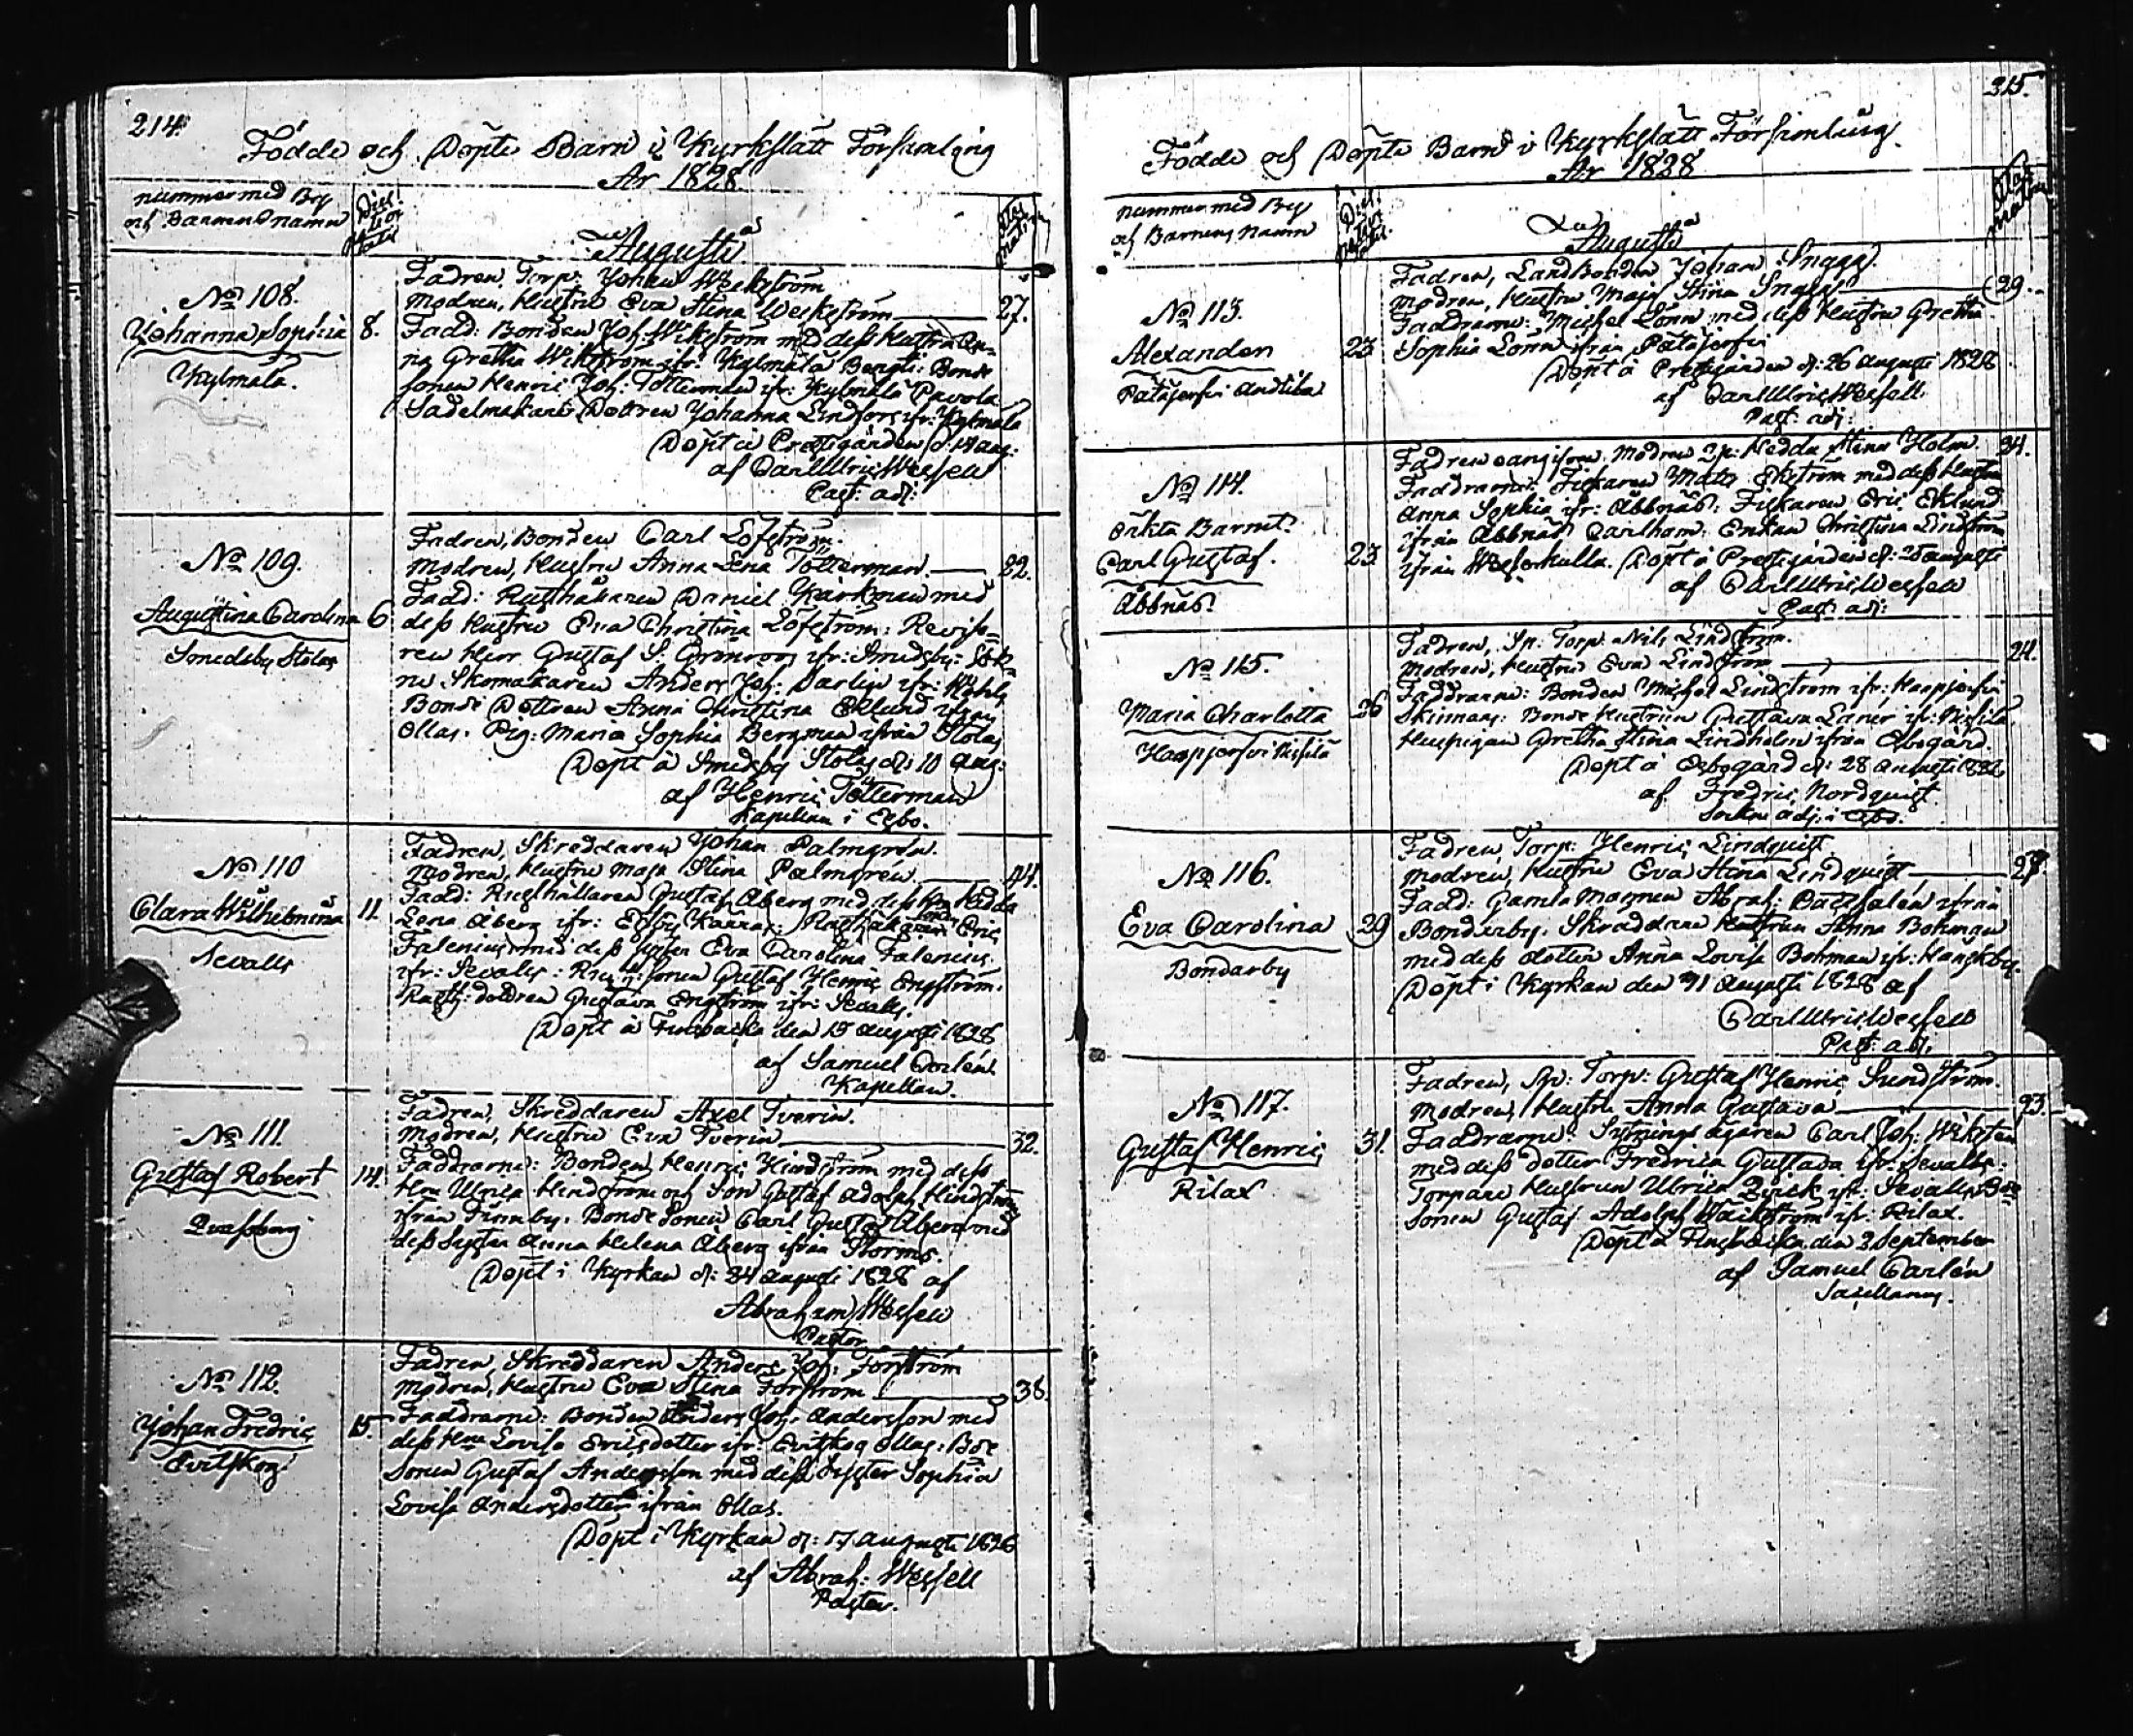 214.
Födde och Döpte Barn i Kyrkslätt Församling
År 1828.
nummer med By
och Barnens namn
Augusti
No 108.
Johanna Sophia 8.
Kylmälä.
Fadren, Torp: Johan Weckström
Modren, Hustru Eva Stina Weckström 27.
Fadd: Bonden Joh: Wikström med dess Hustru An-
na Gretha Wikström ifr: Kylmälä Bengts: Bonde
Sonen Henric Joh: Tötterman ifr: Kylmälä Pavola
Sadelmakare Dottren Johanna Lindfors ifr: Kylmälä
Döpt å Prestgården d: 14 aug:
af Carl Ulric Wessell
Past: adj:
No 109.
Augustina Carolina 6
Smedsby Stolas
Fadren, Bonden Carl Löfström.
Modren, Hustru Anna Lena Tötterman. 22.
Fadd: Rusthållaren Daniel Karkman med
dess Hustru Eva Christina Löfström: Reviso-
ren Herr Gustaf S. Grönroos ifr: Smedsby: Sok-
ne Skomakaren Anders Joh:
Bonde Dottren Anna Christina Eklund ifrån
Ollas. Pig: Maria Sophia Bergman ifrån Stolas
Döpt å Smedsby Stolas d: 10 Aug:
af Henric Tötterman
Kapellan i Esbo.
No 110
Clara Wilhelmina 11.
Sevalls
Fadren, Skreddaren Johan Palmgrén.
Modren, Hustru Maja Stina Palmgrén. 44.
Fadd: Rusthållaren Gustaf Åberg med dess Hru Hedda
Lena Åberg ifr: Eric
Falenius med dess Syster Eva Carolina Falenius.
ifr: Sevalls: Rusth: Sonen Gustaf Henric Engström.
Rusth: dottren Gustava Engström ifr: Sevalls.
Döpt å den 15 augusti 1828
af Samuel Carlén
Kapellan.
No 111.
Gustaf Robert 14.
Fadren, Skreddaren Axel Tverin.
Modren, Hustru Eva Tverin 32.
Faddrarne: Bonden Henric Hindström med dess
Hru Ulrica Hindström och Son Gustaf Adolph Hindström
ifrån Finnby. Bonde Sonen Carl Gustaf Åberg med
dess Syster Anna Helena Åberg ifrån Storms.
Döpt i Kyrkan d: 24 augusti 1828 af
Abraham Wessell
Pastor
No 112.
Johan Fredric 15.
Evitskog
Fadren, Skreddaren Anders Joh: Forström
Modren, Hustru Eva Stina Forström 38.
Faddrarne: Bonden Anders Joh: Andersson med
dess Hru Lovisa Ericsdotter ifr: Evitskog Ollas: Bde
Sonen Gustaf Andersson med dess Syster Sophia
Lovisa Andersdotter ifrån Ollas.
Döpt i Kyrkan d: 17 augusti 1828
af Abrah: Wessell
Pastor.
215.
Födde och Döpte Barn i Kyrkslätt Församling.
År 1828
nummer med By
och Barnens Namn
Augusti
No 113.
Alexander 23
Fadren, LandBonden Johan Snagg.
Modren, Hustru Maja Stina Snagg 29.
Faddrarne: Michel Lönn med dess Hustru Gretha
Sophia Lönn ifrån Pätäjerfvi
Döpt å Prestgården d: 26 augusti 1828
af Carl Ulric Wessell.
Past: adj:
No 114.
Oäkta Barnet:
Carl Gustaf. 23
Åbbnäs.
Fadren oangifven. Modren Ip: Hedda Stina Holm. 34.
Faddrarne: Fiskaren Matts Ekström med dess Hustru
Anna Sophia ifr: Åbbnäs: Fiskaren Eric Eklund
ifrån Åbbnäs Carlhamn: Enkan Christina Lindström
ifrån Döpt å Prestgården d: 25 augusti
af Carl Ulric Wessell
Past: adj:
No 115.
Maria Charlotta 26
Haapjerfvi
Fadren, Sp: Torp: Nils Lindström.
Modren, Hustru Eva Lindström 24.
Faddrarne: Bonden Michel Lindström ifr: Haapjerfvi
Skinnars: Bonde Hustrun Gustava
Huspigan Gretha Stina Lindholm ifrån Esbogård.
Döpt å Esbogård d: 28 augusti 1828
af Fredric Nordquist.
Sockne adj: i Esbo.
No 116.
Eva Carolina 29
Bondarby
Fadren, Torp: Henric Lindquist.
Modren, Hustru Eva Stina Lindquist. 27.
Fadd: Gamla Mannen Abrah: ifrån
Bondarby. Skreddare Hustrun Anna Bohman
med dess dotter Anna Lovisa Bohman ifr: Hangkby.
Döpt i Kyrkan den 31 augusti 1828 af
Carl Ulric Wessell
Past: adj:
No 117.
Gustaf Henric 31.
Rilax
Fadren, Sp: Torp: Gustaf Henric Sundström.
Modren, Hustru Anna Gustava 23.
Faddrarne: Sytnings ägaren Carl Joh: Wiksten
med dess dotter Fredrica Gustava ifr: Sevalls:
Torpare Hustrun Ulrica ifr: Sevalls: Bde
Sonen Gustaf Adolph Wäckström ifr: Rilax.
Döpt å den 3 September
af Samuel Carlén
Sacellanus.